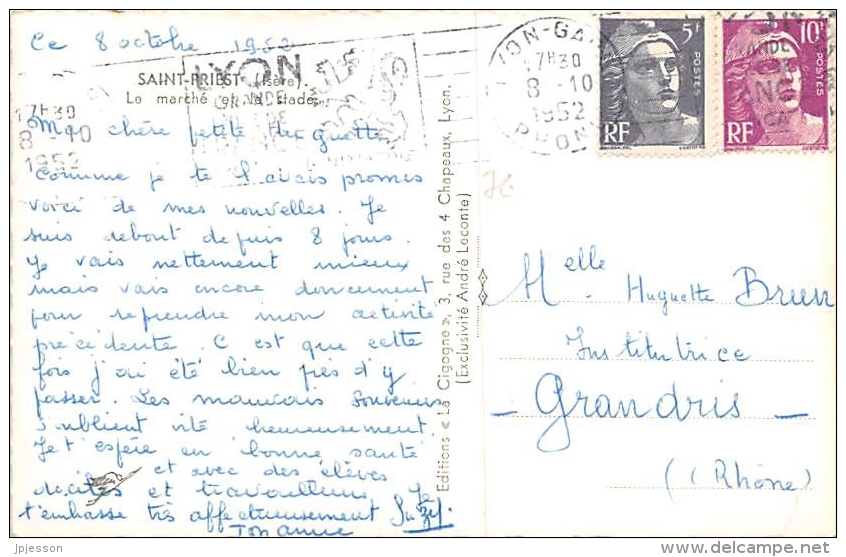 Ce 8 octobre 1952
LYON
SAINT-PRIEST (Isère).
Le marché et le stade.
Ma chère petite Huguette
Comme je te l'avais promis
voici de mes nouvelles. Je
suis debout depuis 8 jours.
Je vais nettement mieux
mais vais encore doucement
pour reprendre mon activité
précédente. C'est que cette
fois j'ai été bien près d'y
passer. Les mauvais souvenirs
s'oublient vite heureusement.
Je t'espère en bonne santé
et avec des élèves
dociles et travailleurs. Je
t'embrasse très affectueusement
Ton amie
Editions « La Cigogne », 3, rue des 4 Chapeaux, Lyon.
(Exclusivité André Leconte)
LYON-GARE
17H30
8 - 10
1952
RHONE
5F
POSTES
RF
10F
POSTES
RF
17H30
8 - 10
1952
Melle Huguette Brun
Institutrice
- Grandris -
(Rhône)
jpjesson
delcampe.net